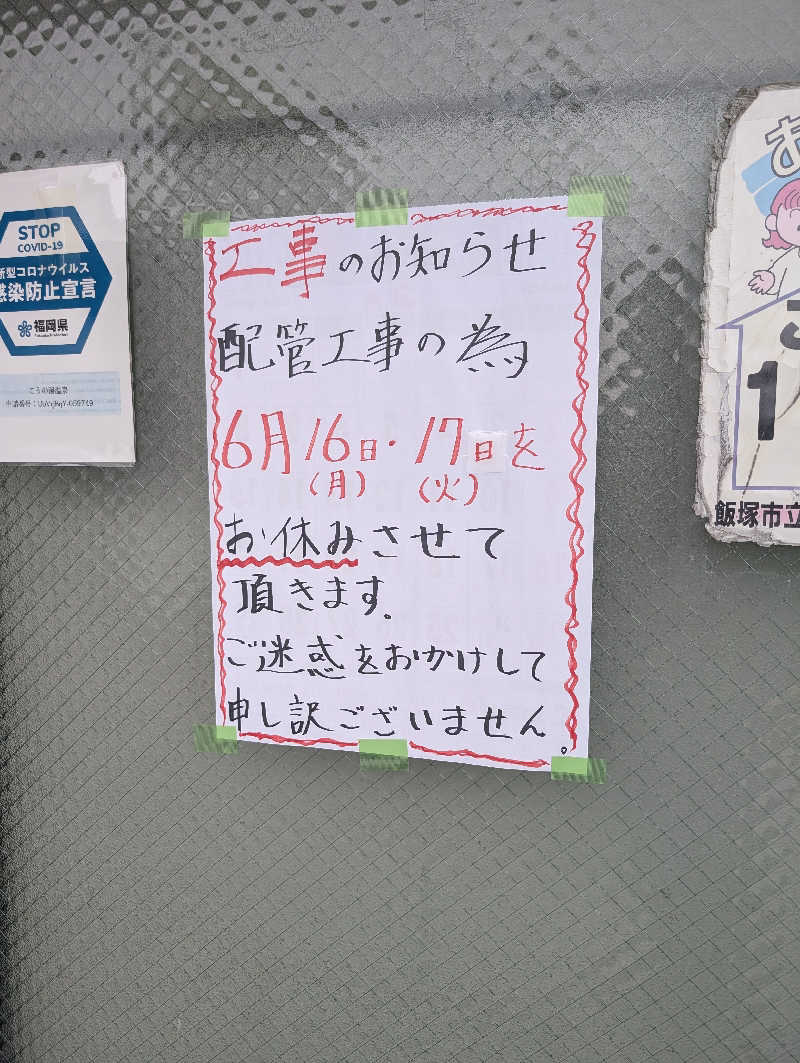 STOP
COVID-19
新型コロナウイルス
感染防止宣言
福岡県
工事のお知らせ
配管工事の為
6月16日・17日を
(月) (火)
お休みさせて
頂きます.
ご迷惑をおかけして
申し訳ございません。
あ
1
飯塚市立